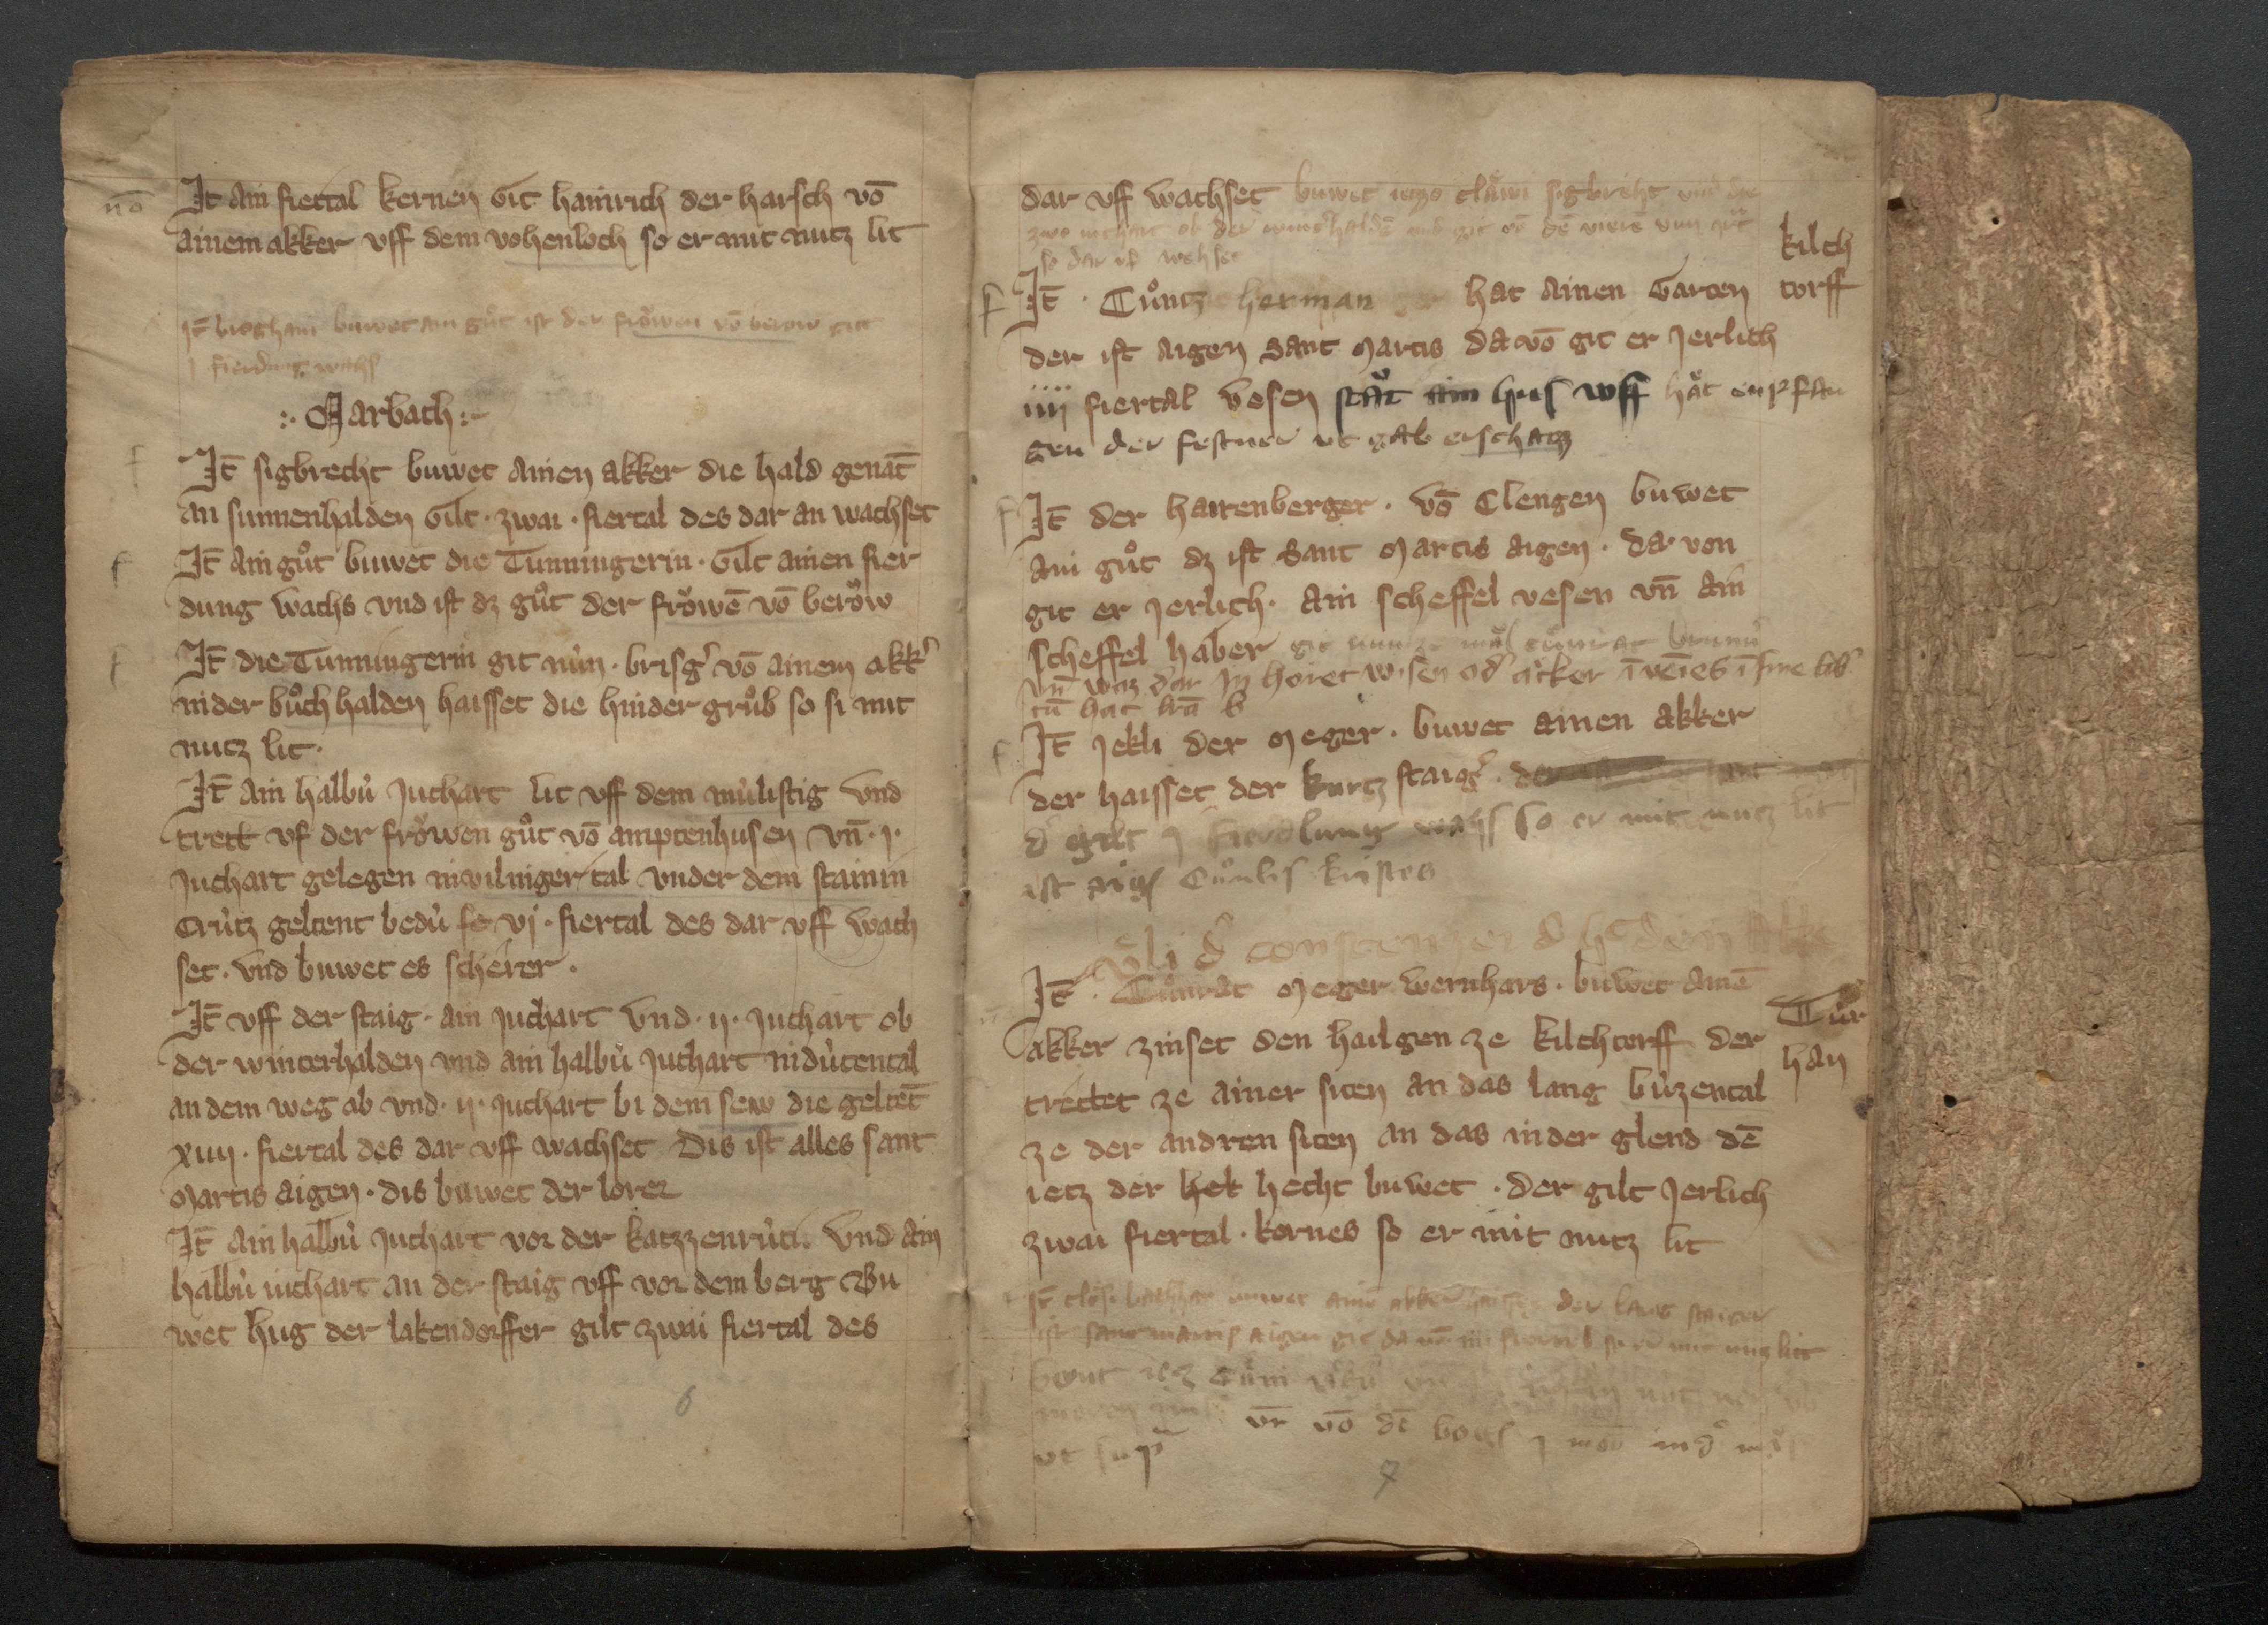 no
It ain fiertal kernen Git hainrich der harsch vō
ainem akker vff dem vohenloch so er mit nutz lit
It buwet ain gůt ist der fröwen vō berow git
j fierdung wachs
:· Marbach :·
It̄ sigbrecht buwet ainen akker die hald genāt
an sunnenhalden Gilt · zwai · fiertal des dar an wachset
It̄ ain gůt buwet die Tunningerin · Gilt ainen fier
dung wachs vnd ist dz gůt der fröwē vō beröw
It̄ die Tunningerin git nùn · brisg' vō ainem akk'
in der bůch halden haisset die hinder grůb so si mit
nutz lit ·
It̄ ain halbù Juchart lit vff dem mùlistig vnd
trett vf der fröwen gůt vō amptenhusen vn̄ · j ·
Juchart gelegen in wilniger tal vnder dem stainin
Crùtz geltent bedù se vj · fiertal des dar vff wach
set · vnd buwet es scherer ·
It̄ vff der staig · ain Juchart vnd · ij · Juchart ob
der winterhalden vnd ain halbù Juchart in dùtental
an dem weg ab vnd · ij · Juchart bi dem sew die geltēt
xiiij · fiertal des dar vff wachset Dis ist alles sant
Martis aigen · dis buwet der lorer
It̄ ain halbù Juchart vor der katzzenrùti · vnd ain
halbù iuchart an der staig vff vor dem berg Bu
wet hug der lakendorffer gilt zwai fiertal des
6
dar vff wachset buwet ietzo cläwi sigbreht vnd die
zwo iuchart ob der winterhaldē vnd git vō dē
so dar vf wehset
kilch
torff
It̄ · Cůntz herman hat ainen Garten
der ist aigen Sant Martis da vō git er Jerlich
iiij fiertal vesen stăt ain hus vff hăt enpfan
gen der festner vt gab erschatz
It̄ der hattenberger · vō Clengen buwet
ain gůt dz ist Sant Martis aigen · dar von
git er Jerlich · ain scheffel vesen vn̄ ain
scheffel haber git
vn̄ waz dar In höret wisen od' äcker
It̄ Jekli der Meger · buwet ainen akker
der haisset der kurtz staig' ·
d' gilt j fierdlung wahs so er mit nutz lit
ist
ůli d' costentzer d'
It̄ · Cůnrat Meger wernhars · buwet ainē
Tùr
han
akker zinset den hailgen ze kilchtorff der
trettet ze ainer siten an das lang bùzental
ze der andren siten an das inder glend dē
ietz der het hecht buwet · der gilt Jerlich
zwai fiertal · kernes so er mit nutz lit
It̄ buwet ainē akker haisset der lang staiger
ist sant martis aigen git da vō iiij fiertal so er mit nutz lit
vt sup̄ vn̄ vō dē
7